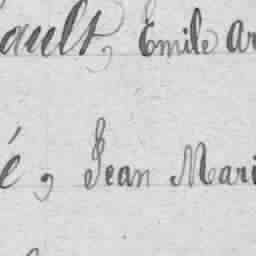 ault, Emile Ar
é, Jean Mari